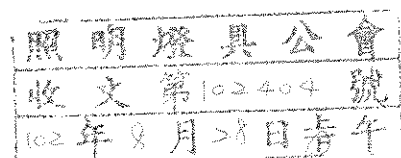 照明燈具公會
收文第102404號
102年8月28日 午